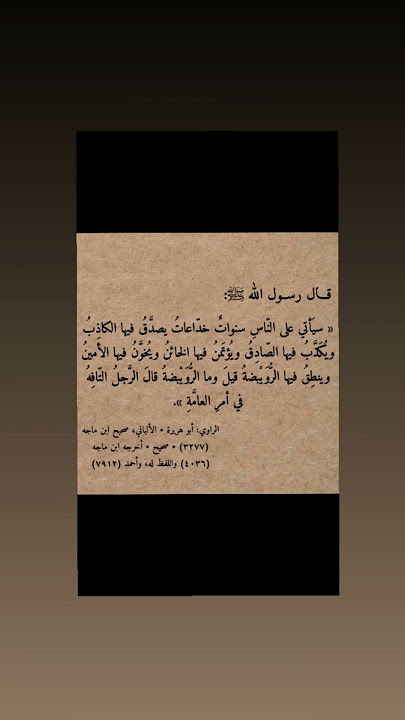 قـال رسـول الله ﷺ:
« سيَأتي على النّاسِ سنواتٌ خدّاعاتُ يصدَّقُ فيها الكاذِبُ
ويُكَذَّبُ فيها الصّادِقُ ويُؤتَمنُ فيها الخائنُ ويُخوَّنُ فيها الأمينُ
وينطِقُ فيها الرُّوَيْبضةُ قيلَ وما الرُّوَيْبضةُ قالَ الرَّجلُ التّافِهُ
في أمرِ العامَّةِ ».
الراوي: أبو هريرة • الألباني، صحيح ابن ماجه
(٣٢٧٧) • صحيح • أخرجه ابن ماجه
(٤٠٣٦) واللفظ له، وأحمد (٧٩١٢)